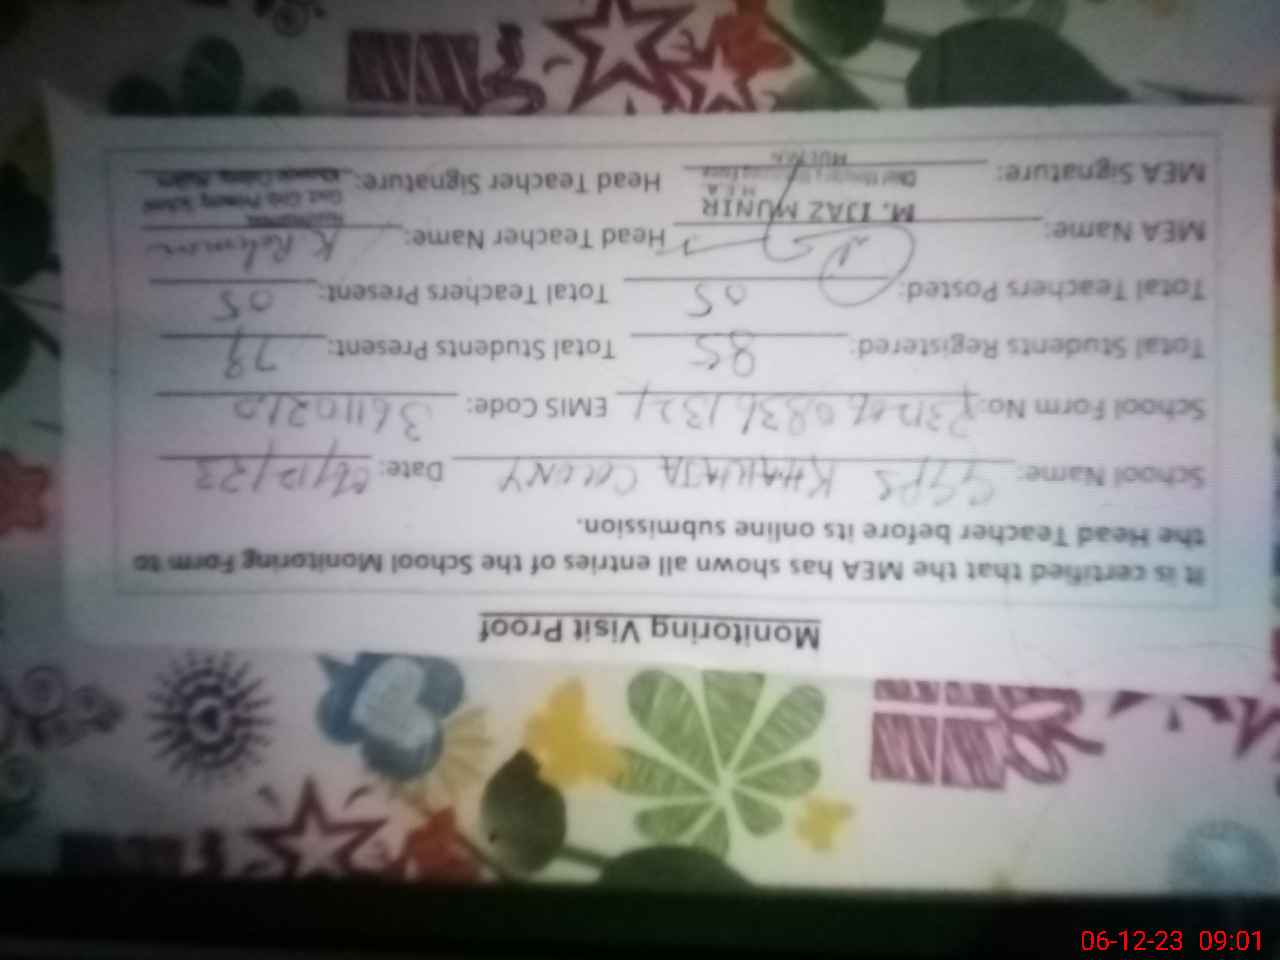 Monitoring Visit Proof
It is certified that the MEA has shown all entries of the School Monitoring Form to
the Head Teacher before its online submission.
School Name: GGPS KHAWAJA COLONY Date: 06/12/23
School Form No: EMIS Code: 36110210
Total Students Registered: 85 Total Students Present: 79
Total Teachers Posted: 05 Total Teachers Present: 05
MEA Name: M. IJAZ MUNIR Head Teacher Name: K Rehman
M E A
MEA Signature: MULTAN Head Teacher Signature:
Govt. Girls Primary School
06-12-23 09:01